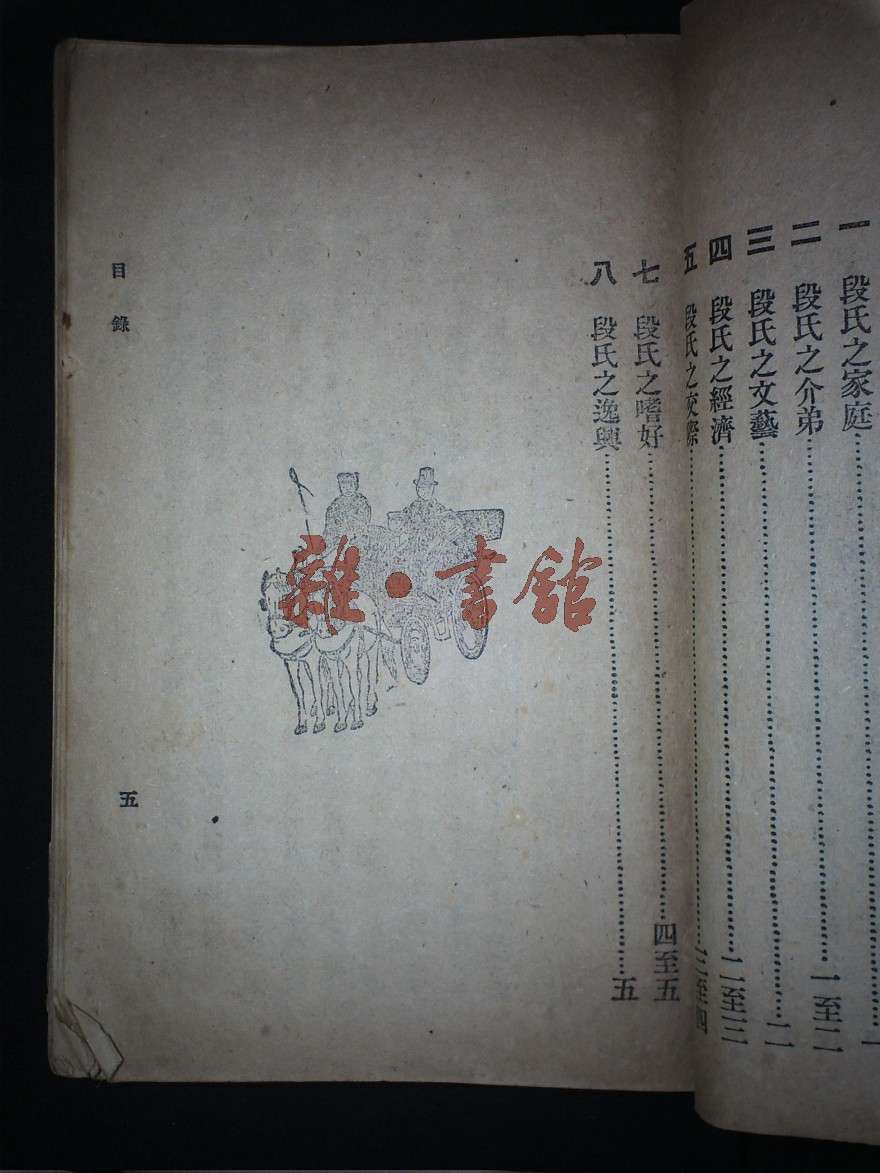 一 段氏之家庭……………………一
二 段氏之介弟……………………一至二
三 段氏之文藝……………………二
四 段氏之經濟……………………二至三
五 段氏之交際……………………至四
七 段氏之嗜好……………………四至五
八 段氏之逸興……………………五
目錄
五
雜·書館